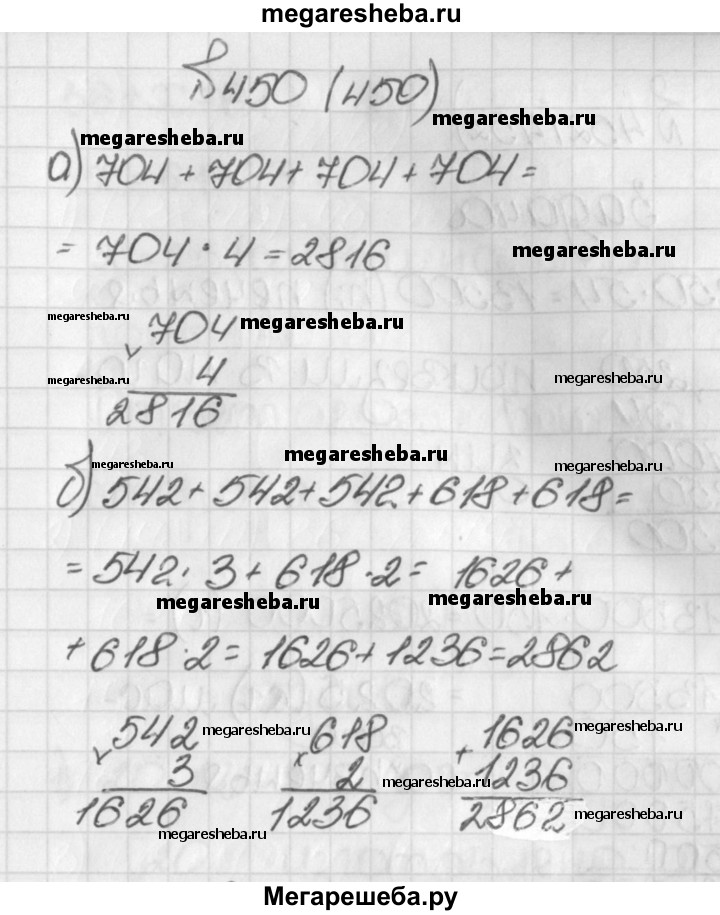 megaresheba.ru
№450 (450)
megaresheba.ru megaresheba.ru
а) 704 + 704 + 704 + 704 =
= 704 · 4 = 2816 megaresheba.ru
megaresheba.ru × 704 megaresheba.ru
megaresheba.ru 4 megaresheba.ru
2816
megaresheba.ru
megaresheba.ru megaresheba.ru
б) 542 + 542 + 542 + 618 + 618 =
= 542 · 3 + 618 · 2 = 1626 +
megaresheba.ru megaresheba.ru
+ 618 · 2 = 1626 + 1236 = 2862
× 542 megaresheba.ru × 618 + 1626 megaresheba.ru
3 2 megaresheba.ru 1236
1626 1236 2862 megaresheba.ru
megaresheba.ru
Мегарешеба.ру